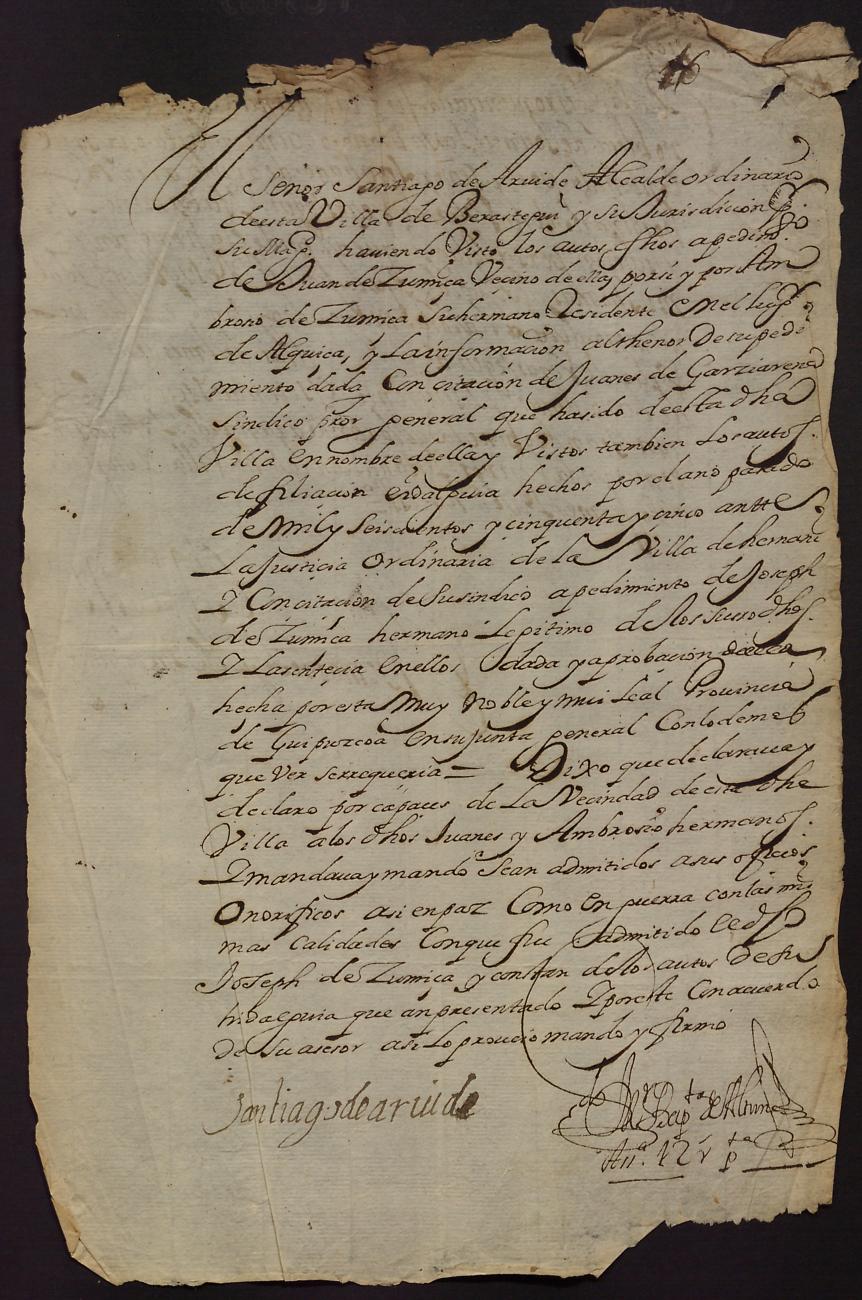 16
El Señor Santiago de Aruide Alcalde ordinario
de esta Villa de Berastegui y su Jurisdicion por
su Magd. hauiendo Visto los autos fhos a pedimto.
de Juan de Zumica Vecino de ella, por si y por Am
brosio de Zumica su hermano Residente en el lugr.
de Alquica, y la informacion al thenor de su pedi
miento dada Con citacion de Juanes de Garziarena
sindico pror general que ha sido de esta dha
Villa en nombre de ella y Vistos tambien los autos
de filiacion e idalguia hechos por el año pasado
de mil y seiscientos y cinquenta y cinco antte
La Justicia ordinaria de la Villa de hernani
I Con citacion de su sindico a pedimiento de Joseph
de Zumica hermano Legitimo de los susodhos
I La sentecia en ellos dada y aprobacion de ella
hecha por esta Muy Noble y mui Leal Provincia
de Guipozcoa en su junta general Con lo demas
que Ver se requeria = Dixo que declaraua y
declaro por capaces de La Vecindad de esta dha
Villa a los dhos Juanes y Ambrosio hermanos
I mandaua y mando sean admitidos a sus oficios
Onorificos asi en paz Como en guerra con las mis
mas calidades Con que fue admitido el dho
Joseph de Zumica y constan de los autos de su
hidalguia que an presentado I por este Con acuerdo
de su asesor asi Lo proueio mando y firmo
Santiago de aruide